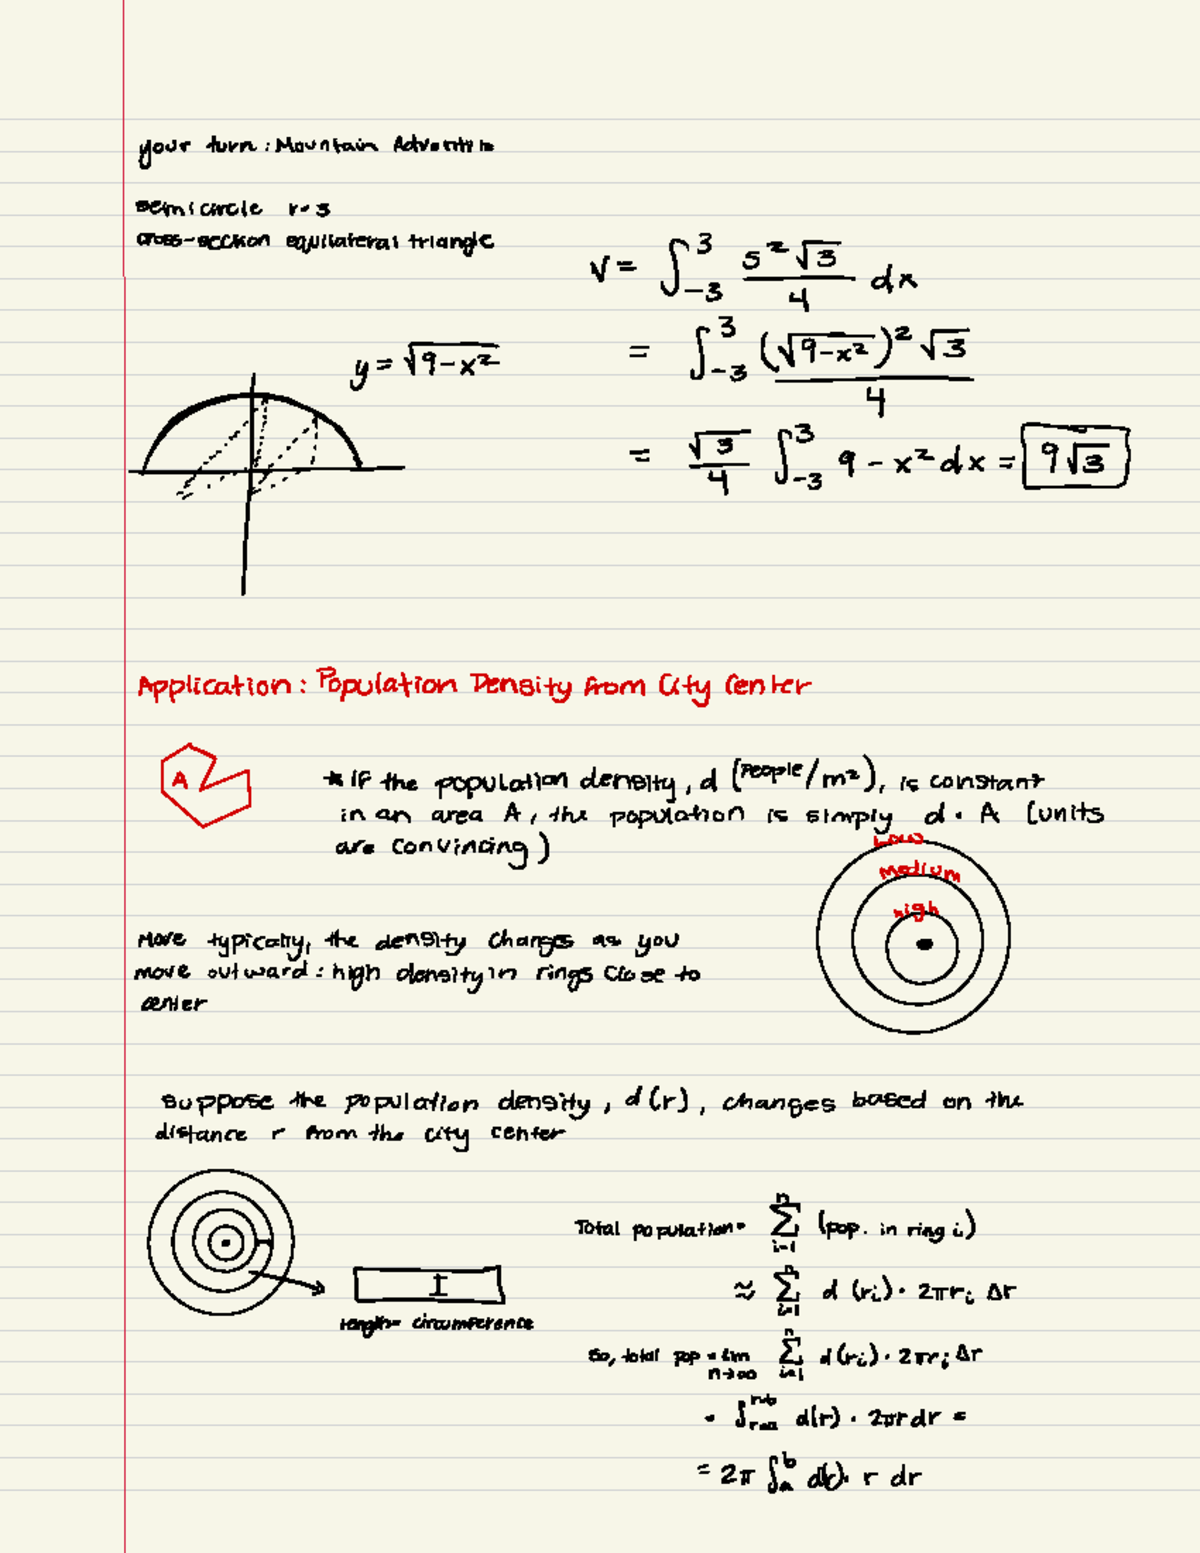 your turn: Mountain Adventure
semicircle r=3
cross-section equilateral triangle
V = ∫_{-3}^{3} s²√3/4 dx
y = √(9-x²)
= ∫_{-3}^{3} (√(9-x²))²√3/4
= √3/4 ∫_{-3}^{3} 9 - x² dx = 9√3
Application: Population Density from City Center
A
* IF the population density, d (People/m²), is constant
in an area A, the population is simply d · A (units
are convincing)
Low
Medium
High
More typically, the density changes as you
move outward: high density in rings close to
center
Suppose the population density, d(r), changes based on the
distance r from the city center
Total population = Σ_{i=1}^{n} (pop. in ring i)
≈ Σ_{i=1}^{n} d(r_i) · 2πr_i Δr
length = circumference
So, total pop = lim_{n→∞} Σ_{i=1}^{n} d(r_i) · 2πr_i Δr
= ∫_{r=a}^{r=b} d(r) · 2πr dr =
= 2π ∫_{a}^{b} d(r) · r dr